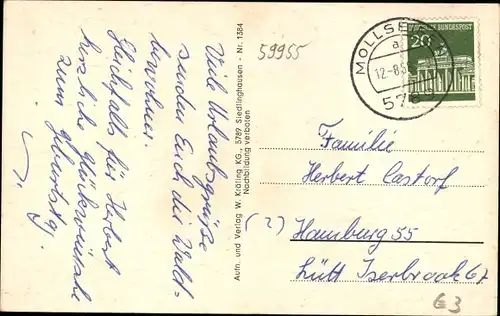 Viele Urlaubsgrüße
senden Euch die Wald-
bewohner.
Gleichfalls für Herbert
herzliche Glückwünsche
zum Geburtstg.
Aufn. und Verlag W. Kräling KG., 5789 Siedlinghausen - Nr. 1384
Nachbildung verboten
59955
MOLLSE
a
12.-8.
576
DEUTSCHE BUNDESPOST
20
Familie
Herbert Castorf
(2) Hamburg 55
Lütt Iserbrook 67
63